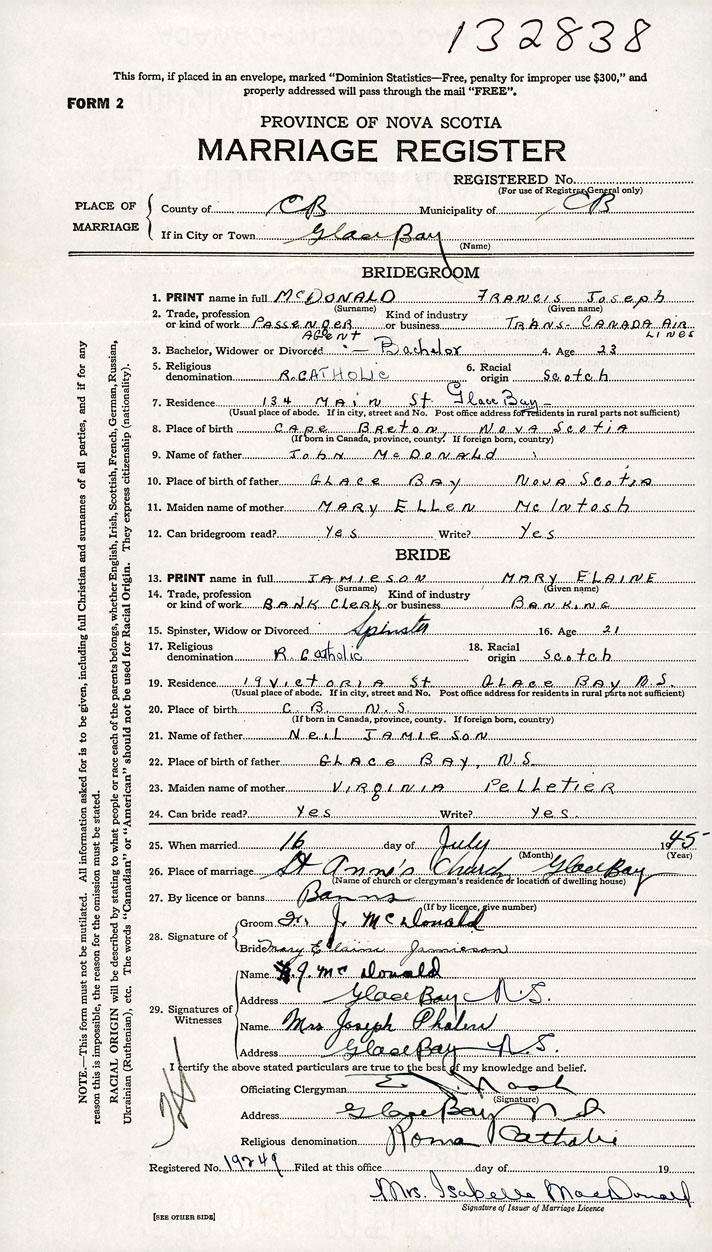 132838
This form, if placed in an envelope, marked "Dominion Statistics—Free, penalty for improper use $300," and
properly addressed will pass through the mail "FREE".
FORM 2
PROVINCE OF NOVA SCOTIA
MARRIAGE REGISTER
REGISTERED No.
(For use of Registrar General only)
PLACE OF MARRIAGE
County of CB Municipality of CB
If in City or Town Glace Bay
(Name)
BRIDEGROOM
1. PRINT name in full McDONALD FRANCIS JOSEPH
(Surname) (Given name)
2. Trade, profession or kind of work PASSENGER AGENT Kind of industry or business TRANS-CANADA AIR LINES
3. Bachelor, Widower or Divorced :- Bachelor 4. Age 23
5. Religious denomination R.CATHOLIC 6. Racial origin Scotch
7. Residence 134 MAIN St Glace Bay
(Usual place of abode. If in city, street and No. Post office address for residents in rural parts not sufficient)
8. Place of birth CAPE BRETON, NOVA SCOTIA
(If born in Canada, province, county. If foreign born, country)
9. Name of father JOHN McDONALD
10. Place of birth of father GLACE BAY NOVA SCOTIA
11. Maiden name of mother MARY ELLEN McINTOSH
12. Can bridegroom read? Yes Write? Yes
BRIDE
13. PRINT name in full JAMIESON MARY ELAINE
(Surname) (Given name)
14. Trade, profession or kind of work BANK CLERK Kind of industry or business BANKING
15. Spinster, Widow or Divorced Spinster 16. Age 21
17. Religious denomination R. Catholic 18. Racial origin Scotch
19. Residence 19 VICTORIA St GLACE BAY N.S.
(Usual place of abode. If in city, street and No. Post office address for residents in rural parts not sufficient)
20. Place of birth C. B. N.S.
(If born in Canada, province, county. If foreign born, country)
21. Name of father NEIL JAMIESON
22. Place of birth of father GLACE BAY, N.S.
23. Maiden name of mother VIRGINIA PELLETIER
24. Can bride read? Yes Write? Yes.
25. When married 16 day of July 1945
(Month) (Year)
26. Place of marriage St Anne's Church Glace Bay
(Name of church or clergyman's residence or location of dwelling house)
27. By licence or banns Banns
(If by licence, give number)
28. Signature of
Groom Fr. J. McDonald
Bride Mary Elaine Jamieson
29. Signatures of Witnesses
Name J. McDonald
Address Glace Bay N.S.
Name Mrs Joseph Phalen
Address Glace Bay N.S.
I certify the above stated particulars are true to the best of my knowledge and belief.
Officiating Clergyman E. Nash
(Signature)
Address Glace Bay N S
Religious denomination Roman Catholic
Registered No. 19249 Filed at this office day of 19
Mrs. Isabella MacDonald
Signature of Issuer of Marriage Licence
[SEE OTHER SIDE]
NOTE.—This form must not be mutilated. All information asked for is to be given, including full Christian and surnames of all parties, and if for any
reason this is impossible, the reason for the omission must be stated.
RACIAL ORIGIN will be described by stating to what people or race each of the parents belongs, whether English, Irish, Scottish, French, German, Russian,
Ukrainian (Ruthenian), etc. The words "Canadian" or "American" should not be used for Racial Origin. They express citizenship (nationality).